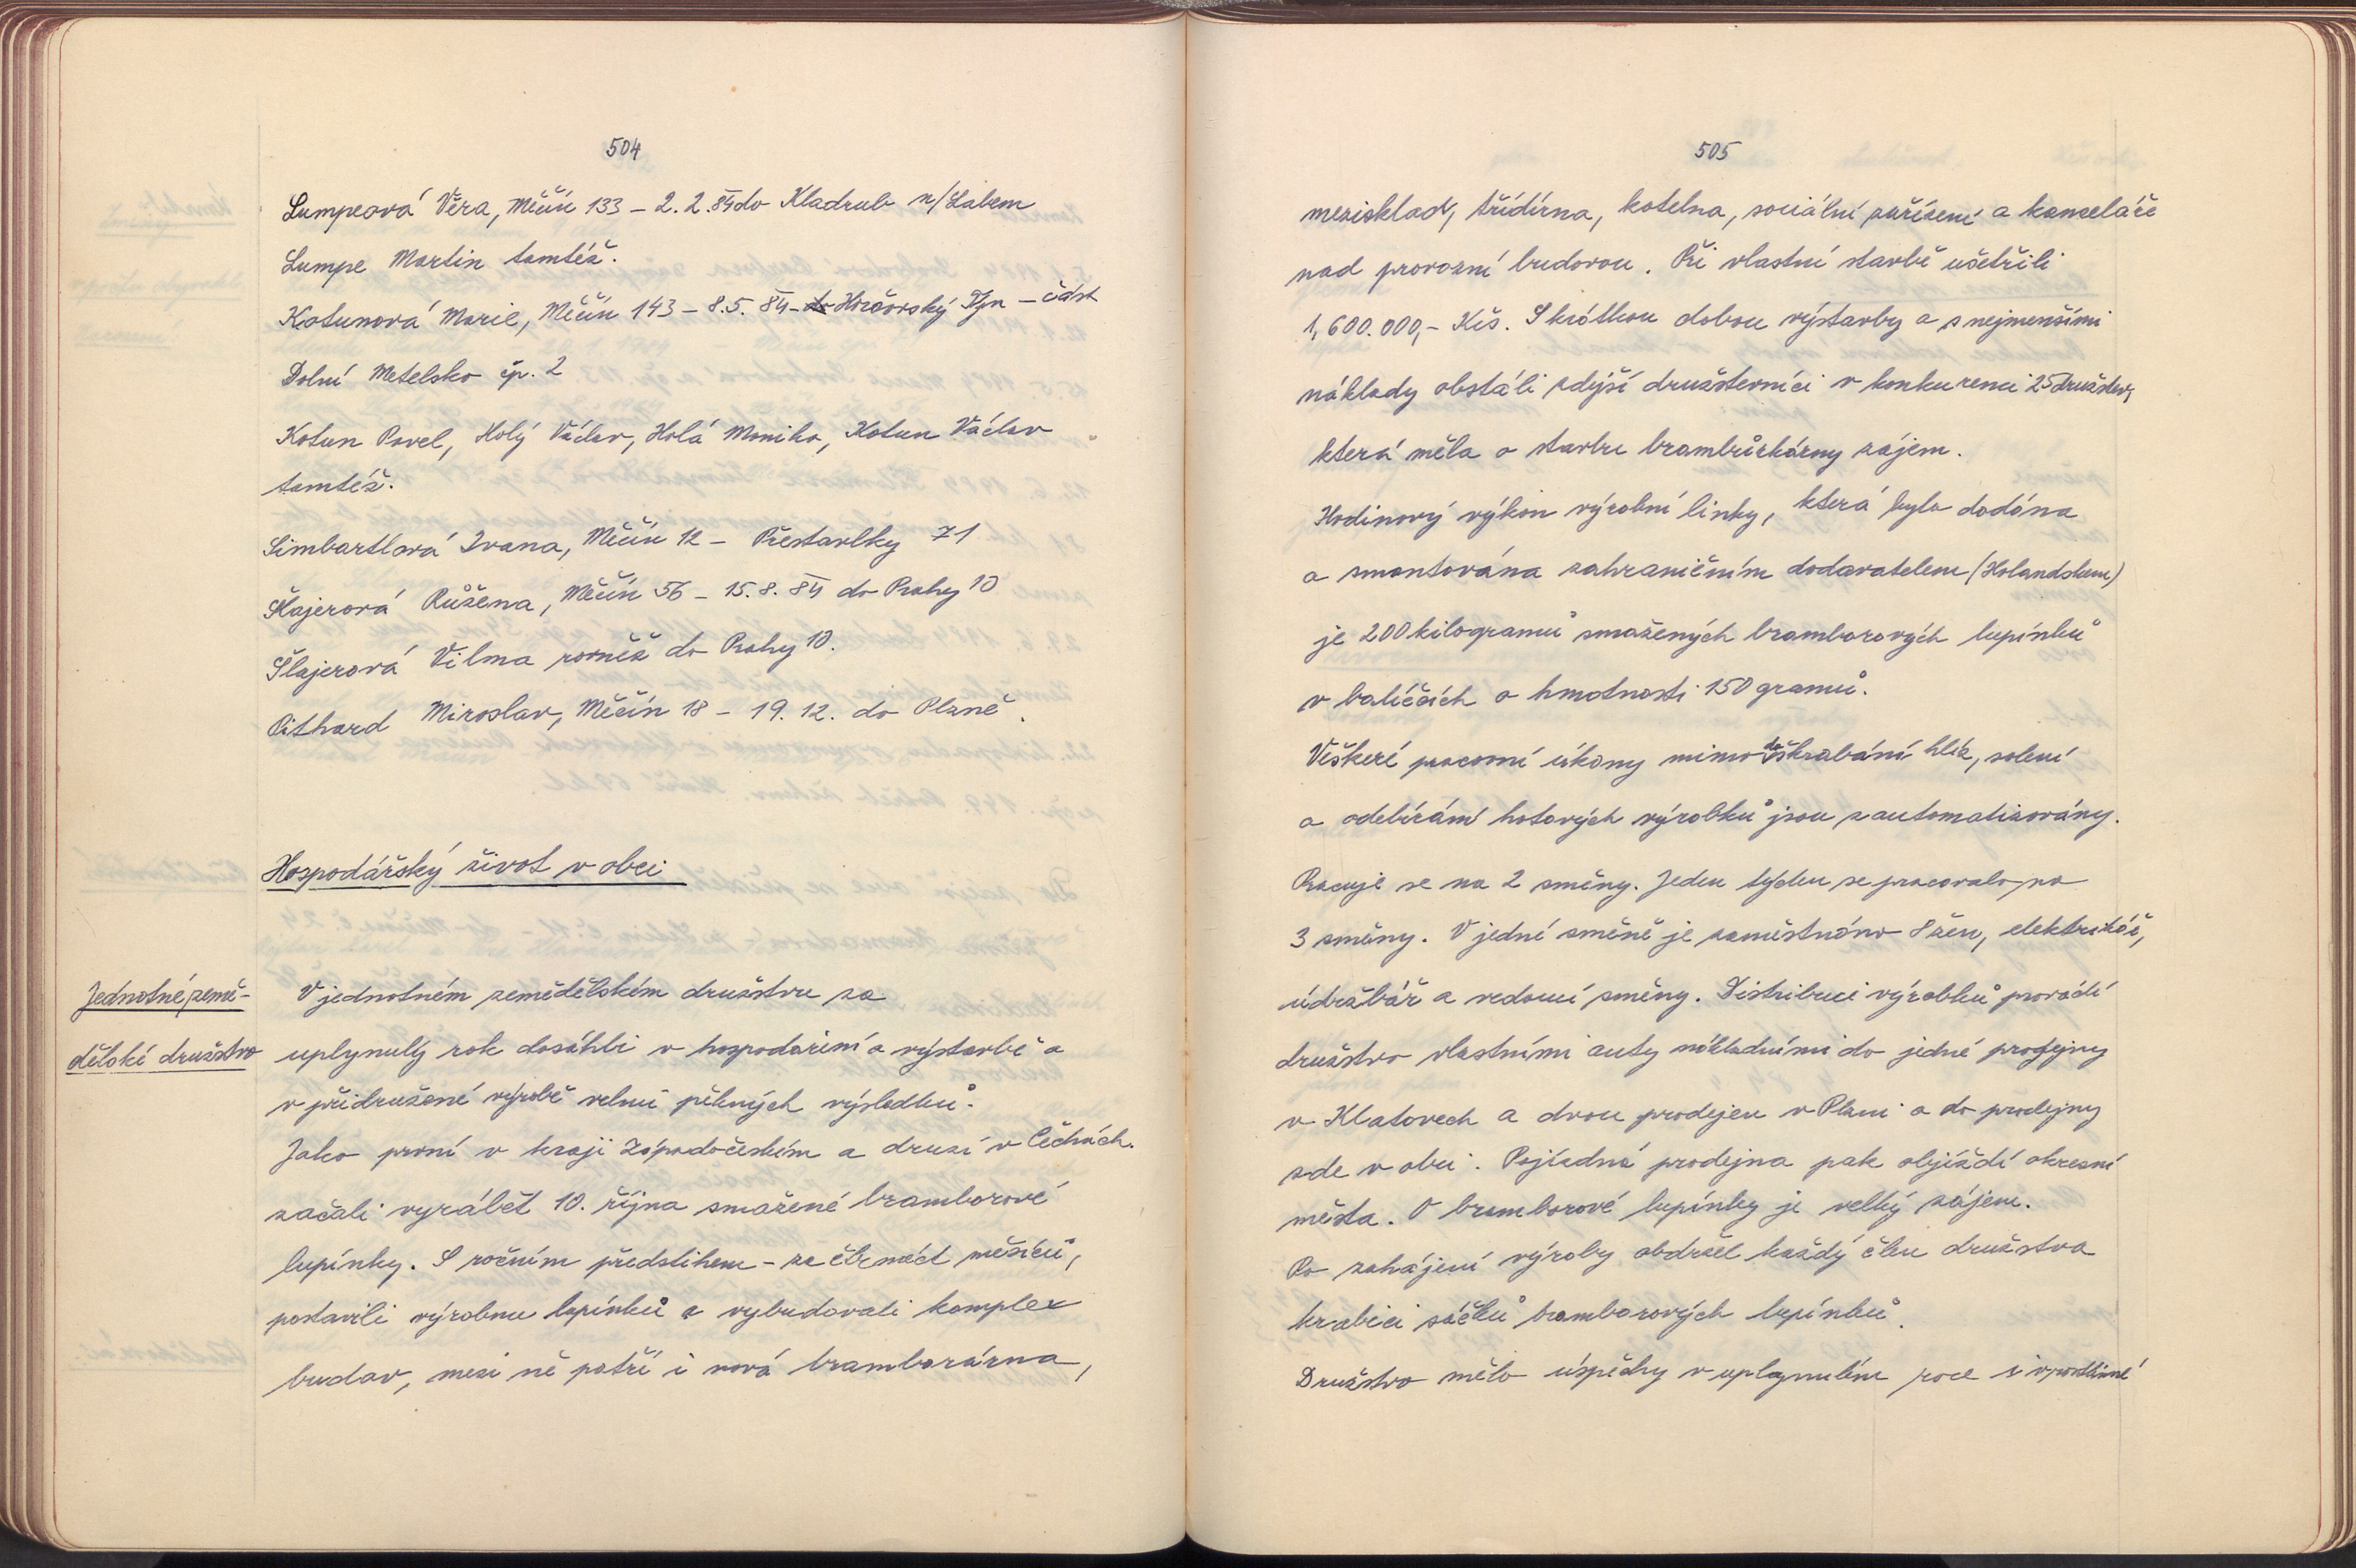 504
Lumpeová Věra, Měčín 133 – 2.2.84 do Kladrub n/Labem
Lumpe Martin tamtéž.
Kotunová Marie, Měčín 143 – 8.5. 84 – do Horšovský Týn – část
Dolní Metelsko čp. 2
Kotun Pavel, Holý Václav, Holá Monika, Kotun Václav
tamtéž.
Simbartlová Ivana, Měčín 12 – Přestavlky 71
Šlajerová Růžena, Měčín 56 – 15.8.84 do Prahy 10
Šlajerová Vilma rovněž do Prahy 10.
Pithard Miroslav, Měčín 18 – 19.12. do Plzně.
Hospodářský život v obci
Jednotné země-
dělské družstvo
V jednotném zemědělském družstvu za
uplynulý rok dosáhli v hospodaření a výstavbě a
v přidružené výrobě velmi pěkných výsledků.
Jako první v kraji Západočeském a druzí v Čechách
začali vyrábět 10. října smažené bramborové
lupínky. S ročním předstihem – za čtrnáct měsíců,
postavili výrobnu lupínků a vybudovali komplex
budov, mezi ně patří i nová bramborárna,
505
mezisklad, třídírna, kotelna, sociální zařízení a kanceláře
nad provozní budovou. Při vlastní stavbě ušetřili
1,600.000,- Kčs. S krátkou dobou výstavby a s nejmenšími
náklady obstáli zdejší družstevníci v konkurenci 25 družstev,
která měla o stavbu brambůrkárny zájem.
Hodinový výkon výrobní linky, která byla dodána
a smontována zahraničním dodavatelem (Holandskem)
je 200 kilogramů smažených bramborových lupínků
v balíčcích o hmotnosti 150 gramů.
Veškeré pracovní úkony mimo doškrabání hlíz, solení
a odebírání hotových výrobků jsou zautomatizovány.
Pracuje se na 2 směny. Jeden týden se pracovalo na
3 směny. V jedné směně je zaměstnáno 8 žen, elektrikář,
údržbář a vedoucí směny. Distribuci výrobků provádí
družstvo vlastními auty nákladními do jedné prodejny
v Klatovech a dvou prodejen v Plzni a do prodejny
zde v obci. Pojízdná prodejna pak objíždí okresní
města. O bramborové lupínky je velký zájem.
Po zahájení výroby obdržel každý člen družstva
krabici sáčků bramborových lupínků.
Družstvo mělo úspěchy v uplynulém roce i v rostlinné